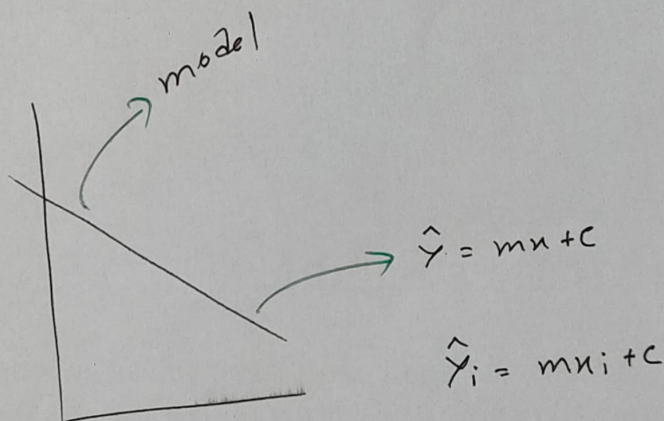 model
ŷ = mx + c
ŷᵢ = mxᵢ + c